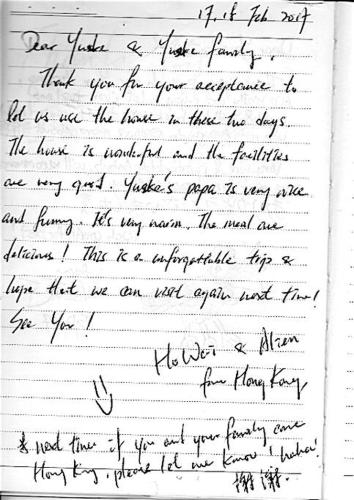 17, 18 Feb 2017
Dear Yuske & Yuske family,
Thank you for your acceptance to
let us use the house in these two days.
The house is wonderful and the facilities
are very good. Yuske's papa is very nice
and funny. It's very warm. The meal are
delicious! This is a unforgettable trip &
hope that we can visit again next time!
See You!
& 
from Hong Kong
* next time if you and your family come
Hong Kong, please let me know! haha!
謝謝.